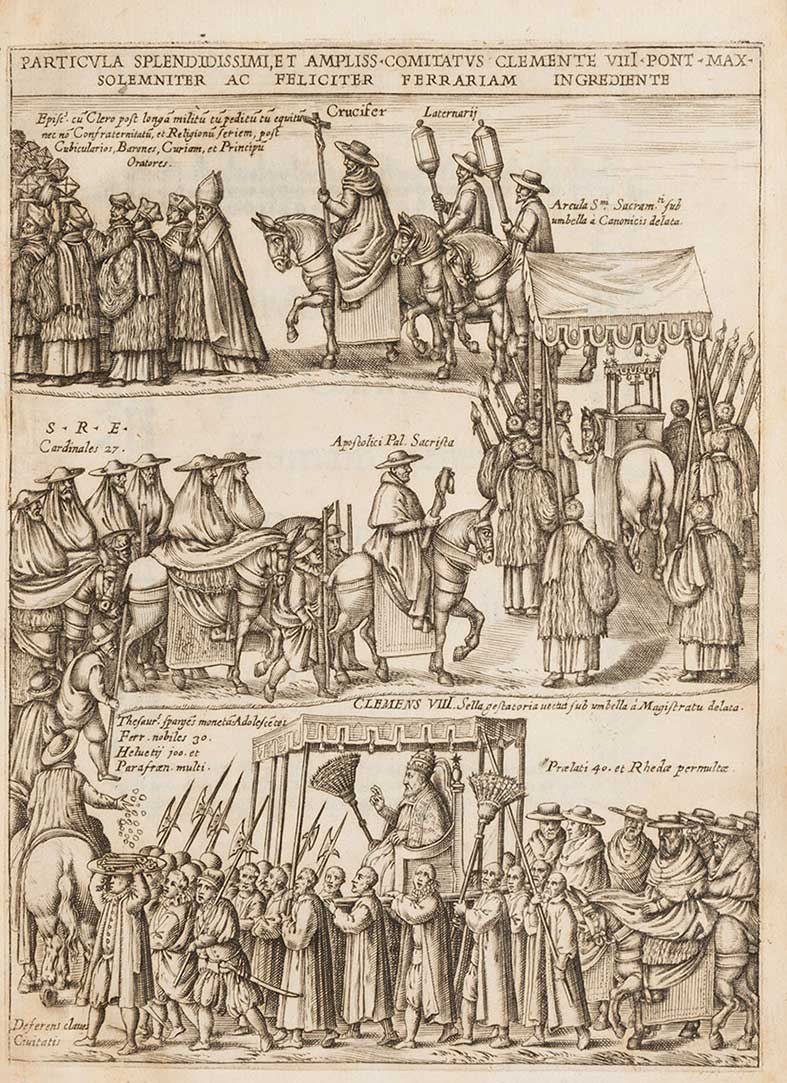 PARTICVLA SPLENDIDISSIMI, ET AMPLISS·COMITATVS CLEMENTE VIII·PONT·MAX·
SOLEMNITER AC FELICITER FERRARIAM INGREDIENTE
Episc.' cũ Clero post longã militũ tũ peditũ tũ equitũ
nec nõ Confraternitatũ, et Religionũ seriem, post
Cubicularios, Barones, Curiam, et Principũ
Oratores.
Crucifer
Laternarij
Arcula S.mi Sacram.ti sub
umbella à Canonicis delata.
S · R · E ·
Cardinales 27.
Apostolici Pal. Sacrista
CLEMENS VIII. Sella gestatoria uectus sub umbella à Magistratu delata.
Thesaur.' spargẽs monetã Adolescẽtes
Ferr. nobiles 30.
Heluetij 300. et
Parafræn. multi.
Prælati 40. et Rhedæ permultæ.
Deferens claues
Ciuitatis